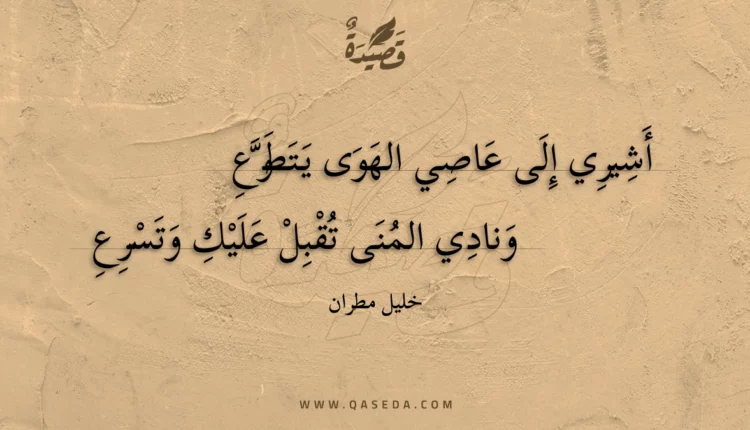 قَصِيْدَةٌ
أَشِيرِي إِلَى عَاصِي الهَوَى يَتَطَوَّعِ
وَنادِي المُنَى تُقْبِلْ عَلَيْكِ وَتَسْرِعِ
خليل مطران
WWW.QASEDA.COM